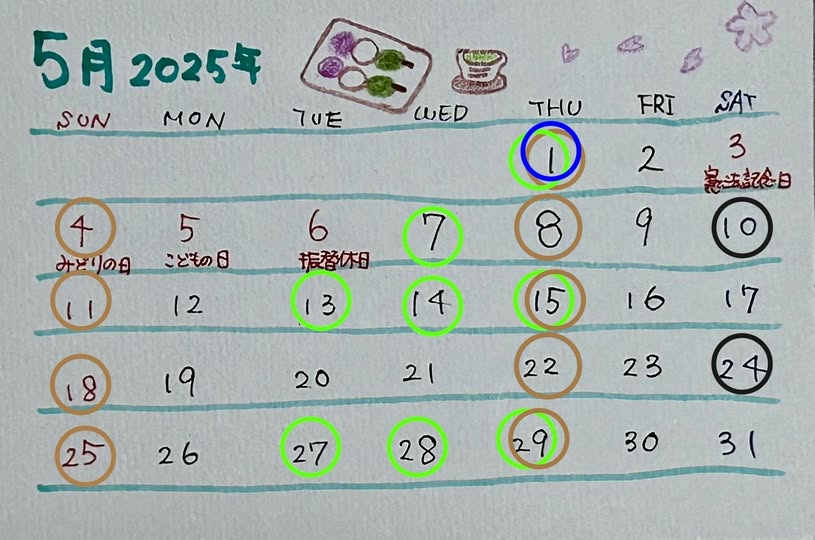 5月 2025年
SUN MON TUE WED THU FRI SAT
1 2 3
憲法記念日
4 5 6 7 8 9 10
みどりの日 こどもの日 振替休日
11 12 13 14 15 16 17
18 19 20 21 22 23 24
25 26 27 28 29 30 31